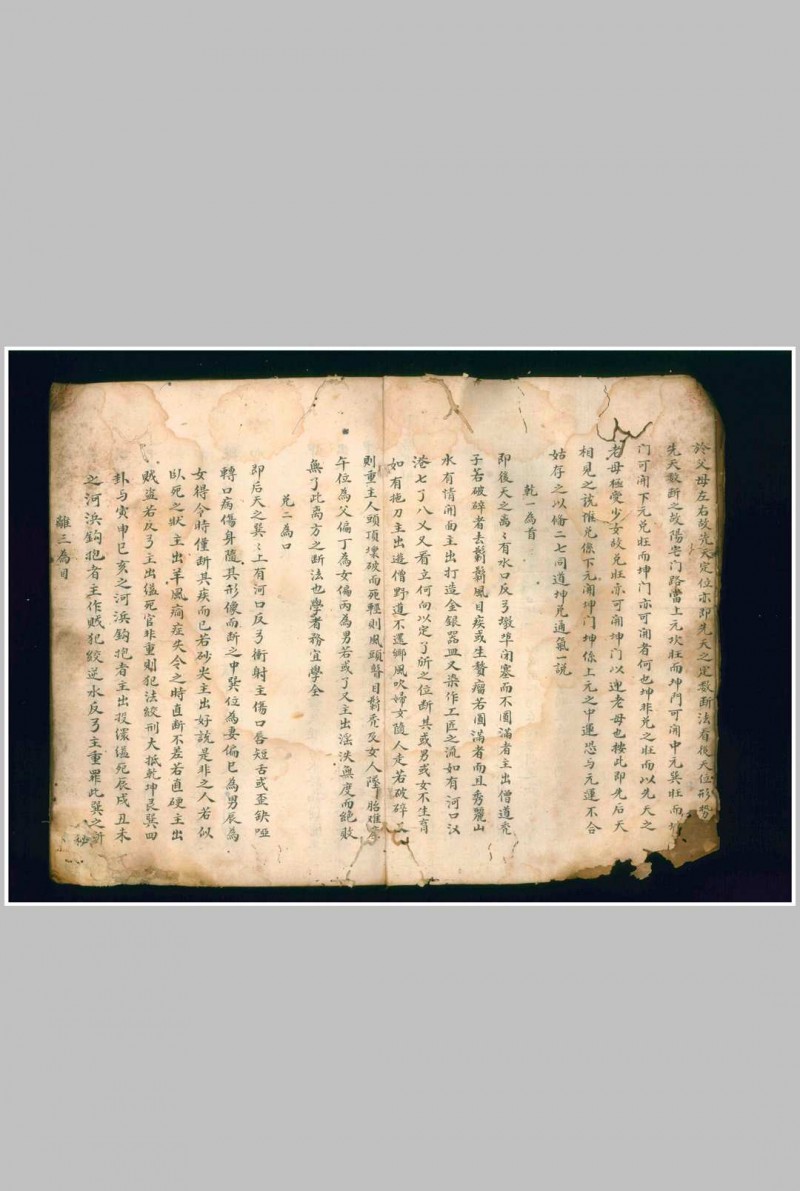 於父母左右故先天定位亦即先天之定數断法看後天位形势
先天数断之故陽宅门路當上元坎旺而坤門可開中元巽旺而
门可開下元兑旺而坤门亦可開者何也坤非兑之旺而以先天之
老母極愛少女故兑旺亦可開坤门以迎老母也按此即先后天
相見之説惟兑係下元開坤门坤係上元之中運恐与元運不合
姑存之以俻二七同道坤兑通氣一説
乾一為首
即後天之离〻有水口反弓墩阜闭塞而不圓滿者主出僧道秃
子若破碎者去鬍鬚風目疾或生贅瘤若圓滿者而且秀麗山
水有情開面主出打造金銀器皿又染作工匠之流如有河口汊
港七丁八乂又看立何向以定了所之位断其或男或女不生育
如有拖刀主出遊僧野道不還鄉風吹婦女隨人走若破碎
則重主人頭頂壞破而死輕則風頭瞽目鬍秃及女人墮胎难
午位為父偏丁為女偏丙為男若或了又主出淫泆無度而絶敗
無了此离方之断法也學者務宜學全
兑二為口
即后天之巽〻上有河口反弓衝射主傷口唇短舌或歪缺啞
轉口病傷身隨其形像而断之中巽位為妻偏巳為男辰為
女得令時僅断其疾而已若砂尖主出好訟是非之人若似
臥死之狀主出羊風癎症失令之時直断不差若直硬主出
賊盗若反弓主出縊死官非重則犯法絞刑大抵乾坤艮巽四
卦与寅申巳亥之河浜鈎抱者主出投缳縊死辰戌丑未
之河浜鈎抱者主作賊犯絞逆水反弓主重罪此巽之断
秘
離三為目